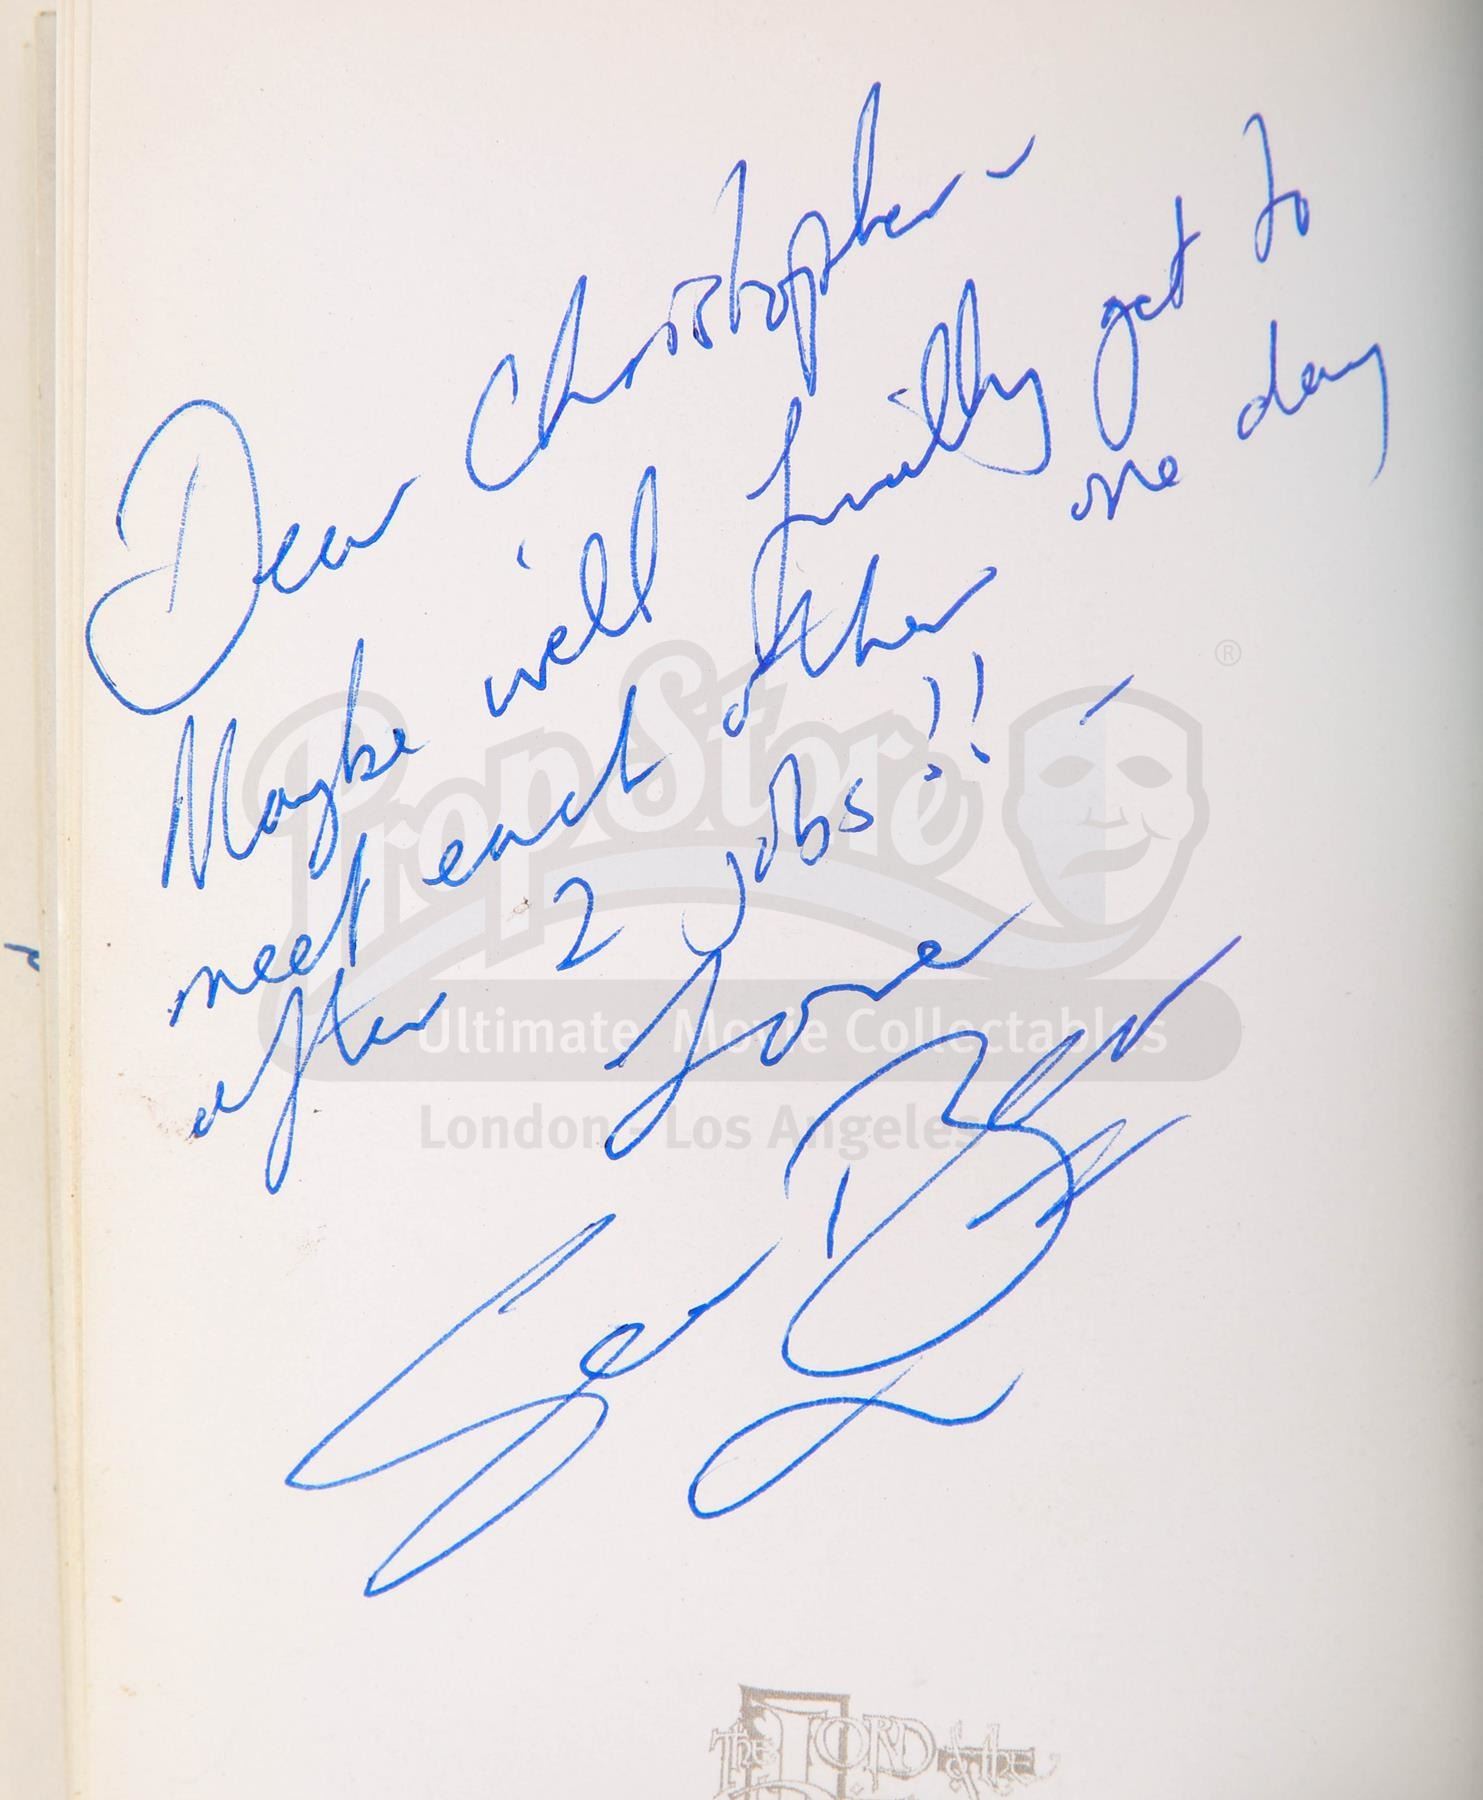 Dear Christopher -
Maybe we'll finally get to
meet each other one day
after 2 jobs!! -
Love
Sean B
PropStore ®
Ultimate Movie Collectables
London - Los Angeles
The LORD of the